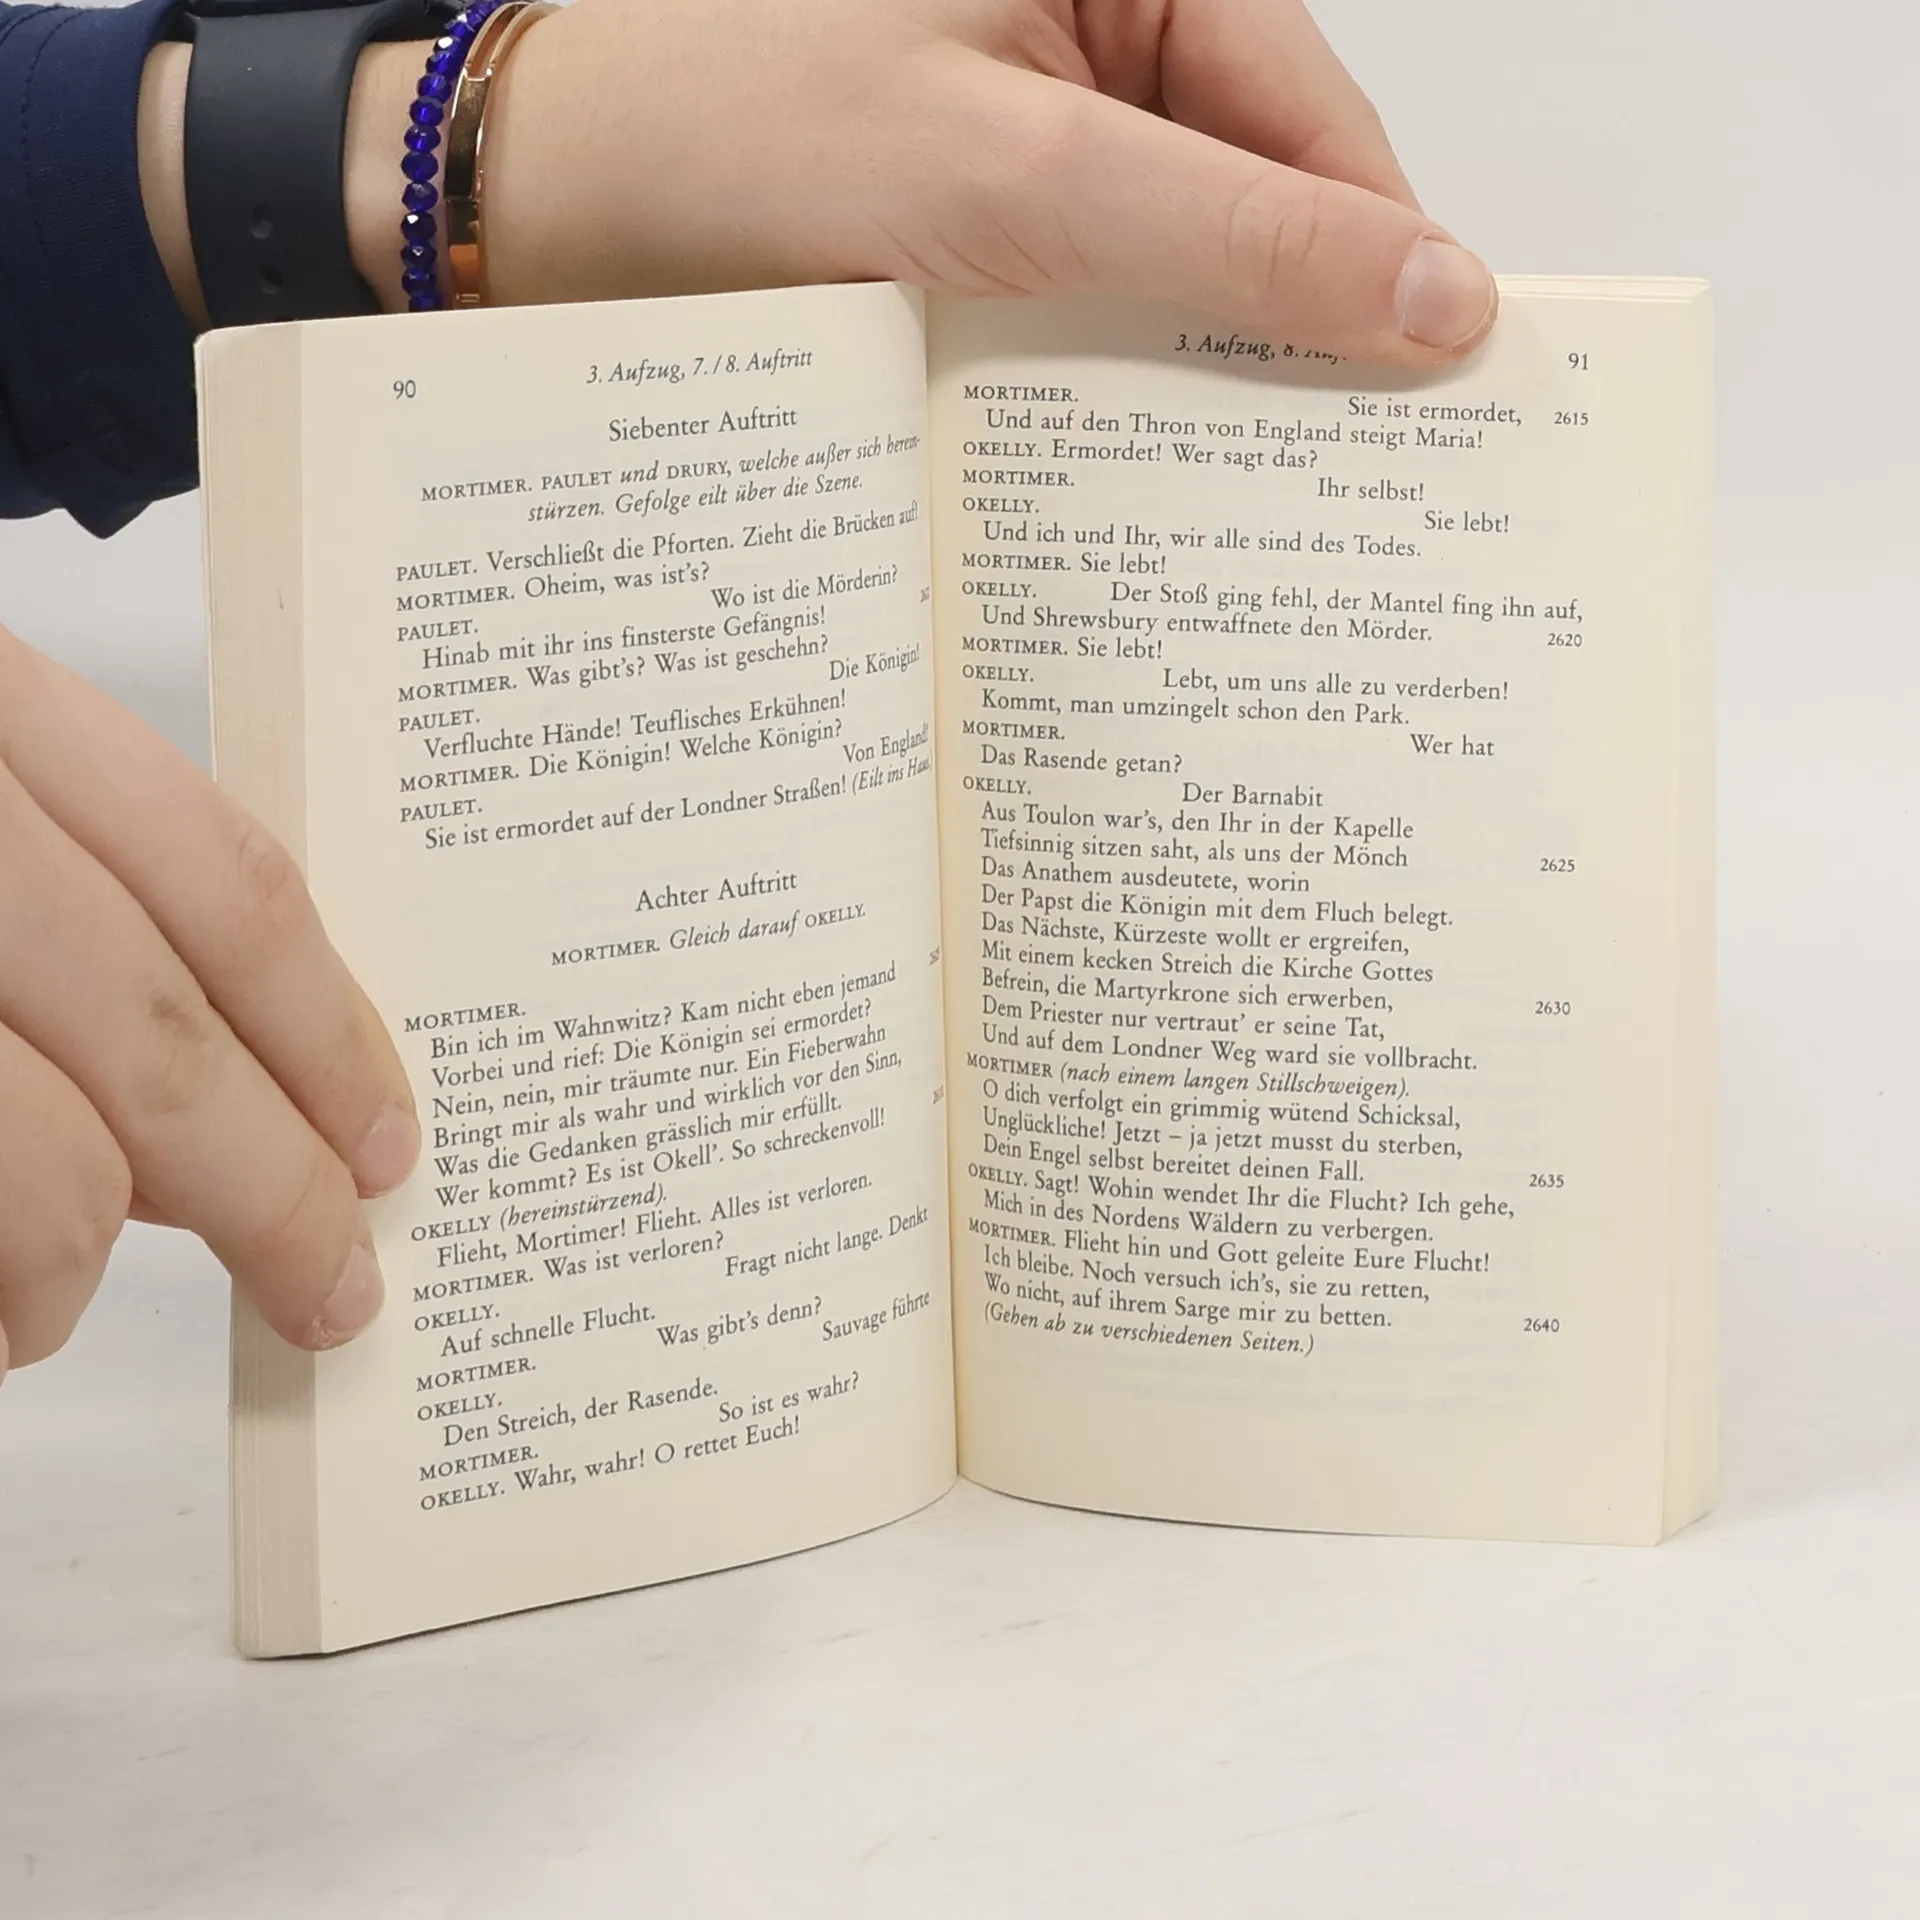 90
3. Aufzug, 7. / 8. Auftritt
Siebenter Auftritt
MORTIMER. PAULET und DRURY, welche außer sich herein-
stürzen. Gefolge eilt über die Szene.
PAULET. Verschließt die Pforten. Zieht die Brücken auf!
MORTIMER. Oheim, was ist's?
PAULET. Wo ist die Mörderin?
Hinab mit ihr ins finsterste Gefängnis!
MORTIMER. Was gibt's? Was ist geschehn?
PAULET. Die Königin!
Verfluchte Hände! Teuflisches Erkühnen!
MORTIMER. Die Königin! Welche Königin?
PAULET. Von England!
Sie ist ermordet auf der Londner Straßen! (Eilt ins Haus.)
Achter Auftritt
MORTIMER. Gleich darauf OKELLY.
MORTIMER.
Bin ich im Wahnwitz? Kam nicht eben jemand
Vorbei und rief: Die Königin sei ermordet?
Nein, nein, mir träumte nur. Ein Fieberwahn
Bringt mir als wahr und wirklich vor den Sinn,
Was die Gedanken grässlich mir erfüllt.
Wer kommt? Es ist Okell'. So schreckenvoll!
OKELLY (hereinstürzend).
Flieht, Mortimer! Flieht. Alles ist verloren.
MORTIMER. Was ist verloren?
OKELLY. Fragt nicht lange. Denkt
Auf schnelle Flucht.
MORTIMER. Was gibt's denn?
OKELLY. Sauvage führte
Den Streich, der Rasende.
MORTIMER. So ist es wahr?
OKELLY. Wahr, wahr! O rettet Euch!
3. Aufzug, 8.
91
MORTIMER. Sie ist ermordet, 2615
Und auf den Thron von England steigt Maria!
OKELLY. Ermordet! Wer sagt das?
MORTIMER. Ihr selbst!
OKELLY. Sie lebt!
Und ich und Ihr, wir alle sind des Todes.
MORTIMER. Sie lebt!
OKELLY. Der Stoß ging fehl, der Mantel fing ihn auf,
Und Shrewsbury entwaffnete den Mörder. 2620
MORTIMER. Sie lebt!
OKELLY. Lebt, um uns alle zu verderben!
Kommt, man umzingelt schon den Park.
MORTIMER. Wer hat
Das Rasende getan?
OKELLY. Der Barnabit
Aus Toulon war's, den Ihr in der Kapelle
Tiefsinnig sitzen saht, als uns der Mönch 2625
Das Anathem ausdeutete, worin
Der Papst die Königin mit dem Fluch belegt.
Das Nächste, Kürzeste wollt er ergreifen,
Mit einem kecken Streich die Kirche Gottes
Befrein, die Martyrkrone sich erwerben, 2630
Dem Priester nur vertraut' er seine Tat,
Und auf dem Londner Weg ward sie vollbracht.
MORTIMER (nach einem langen Stillschweigen).
O dich verfolgt ein grimmig wütend Schicksal,
Unglückliche! Jetzt – ja jetzt musst du sterben,
Dein Engel selbst bereitet deinen Fall. 2635
OKELLY. Sagt! Wohin wendet Ihr die Flucht? Ich gehe,
Mich in des Nordens Wäldern zu verbergen.
MORTIMER. Flieht hin und Gott geleite Eure Flucht!
Ich bleibe. Noch versuch ich's, sie zu retten,
Wo nicht, auf ihrem Sarge mir zu betten. 2640
(Gehen ab zu verschiedenen Seiten.)